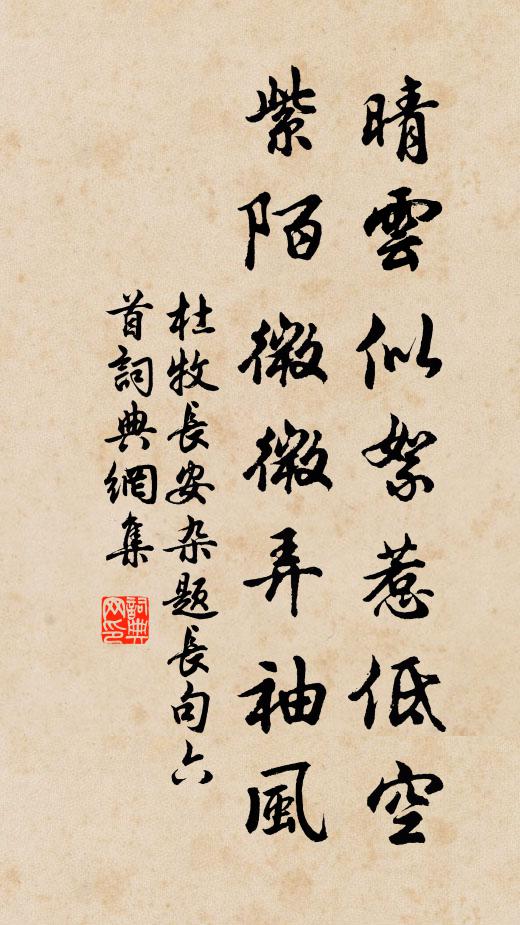 晴雲似絮惹低空
紫陌微微弄袖風
杜牧長安杂题長句六
首詞典網集
詞典网印